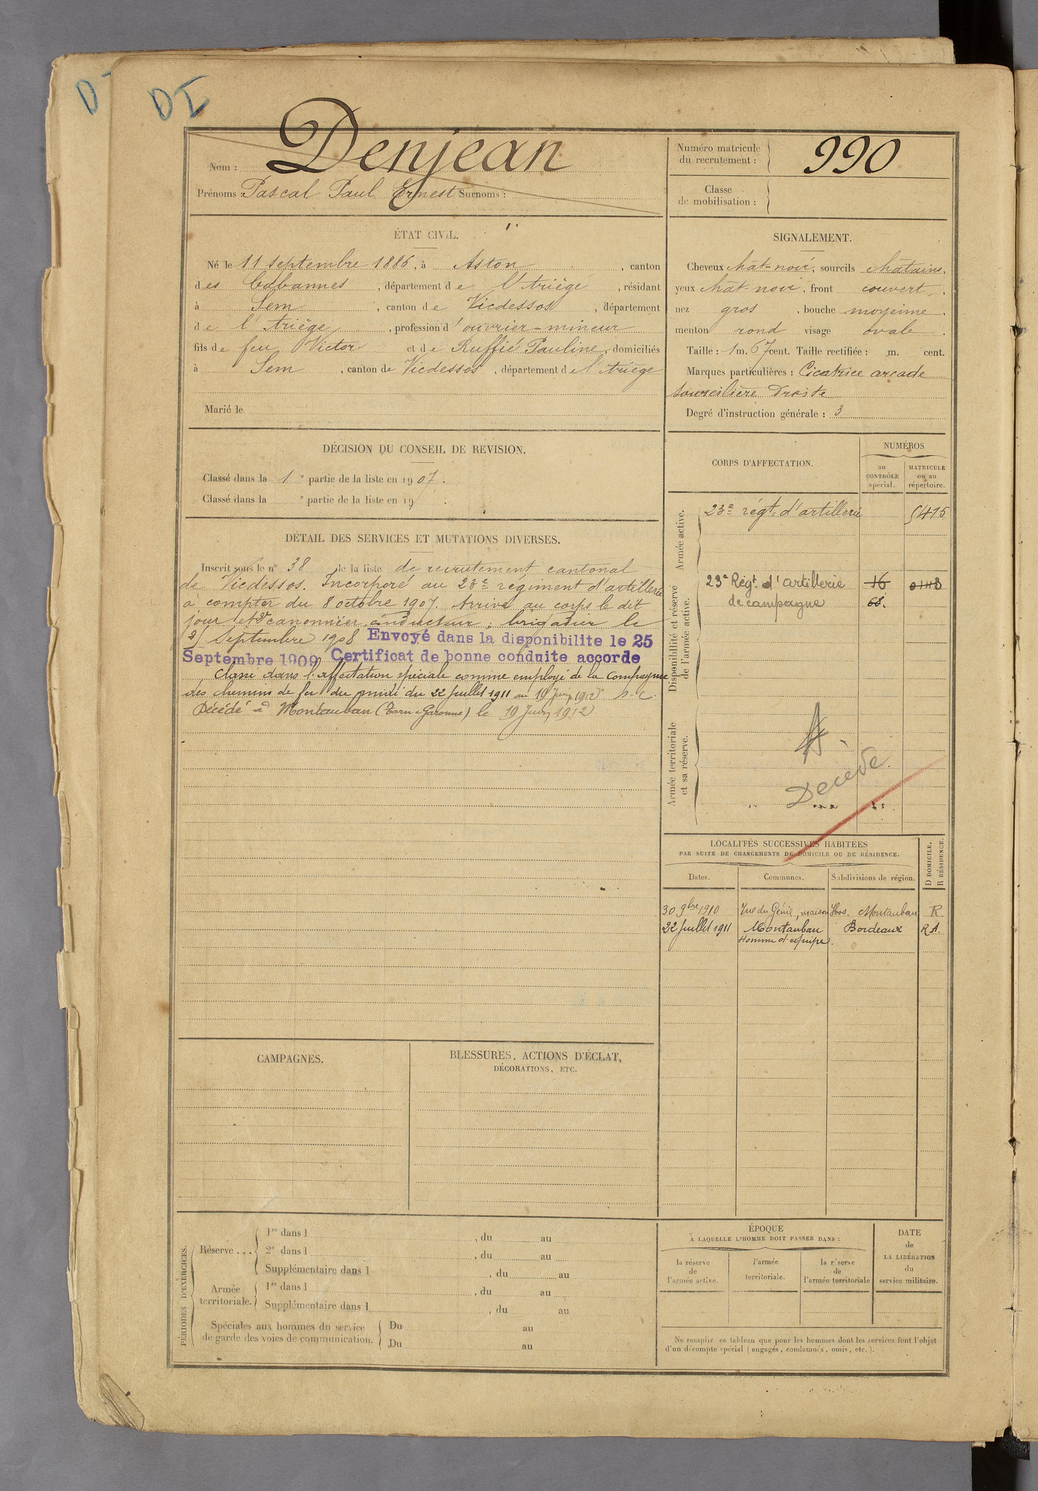 DI
Nom : Denjean
Prénoms : Pascal Paul Ernest Surnoms :
Numéro matricule du recrutement : 990
Classe de mobilisation :
ÉTAT CIVIL.
Né le 11 septembre 1886, à Aston, canton
des Cabannes, département de l'Ariège, résidant
à Sem, canton de Vicdessos, département
de l'Ariège, profession d'ouvrier-mineur
fils de feu Victor et de Ruffié Pauline, domiciliés
à Sem, canton de Vicdessos, département de l'Ariège
Marié le
SIGNALEMENT.
Cheveux chat-noir, sourcils châtains,
yeux chat noir, front couvert,
nez gros, bouche moyenne,
menton rond visage ovale.
Taille : 1 m. 67 cent. Taille rectifiée : m. cent.
Marques particulières : Cicatrice arcade
sourcilière droite
Degré d'instruction générale : 3
DÉCISION DU CONSEIL DE REVISION.
Classé dans la 1e partie de la liste en 1907.
Classé dans la e partie de la liste en 19
DÉTAIL DES SERVICES ET MUTATIONS DIVERSES.
Inscrit sous le n° 38 de la liste de recrutement cantonal
de Vicdessos. Incorporé au 23e régiment d'artillerie
à compter du 8 octobre 1907. Arrivé au corps le dit
jour et 2e canonnier conducteur, brigadier le
Septembre 1908 Envoyé dans la disponibilite le 25
Septembre 1909 Certificat de bonne conduite accorde
Classé dans l'affectation spéciale comme employé de la Compagnie
des chemins de fer du midi du 22 juillet 1911 au 19 1912
Décédé à Montauban (Tarn-et-Garonne) le 19 1912
CORPS D'AFFECTATION.
NUMÉROS
au CONTRÔLE spécial.
MATRICULE ou au répertoire.
Armée active.
23e régt. d'artillerie 5415
Disponibilité et réserve de l'armée active.
23e Régt d'artillerie 16
de campagne 68.
Armée territoriale et sa réserve.
Décédé
LOCALITÉS SUCCESSIVES HABITÉES
PAR SUITE DE CHANGEMENTS DE DOMICILE OU DE RÉSIDENCE.
Dates. Communes. Subdivisions de région. D DOMICILE. R RÉSIDENCE.
30 9bre 1910 Rue du Génie, maison Montauban R
22 juillet 1911 Montauban Bordeaux RA.
Homme d'équipe.
CAMPAGNES.
BLESSURES, ACTIONS D'ÉCLAT,
DÉCORATIONS, ETC.
PÉRIODES D'EXERCICES.
Réserve ...
1re dans l , du au
2e dans l , du au
Supplémentaire dans l , du au
Armée territoriale.
1re dans l , du au
Supplémentaire dans l , du au
Spéciales aux hommes du service
de garde des voies de communication.
Du au
Du au
ÉPOQUE
À LAQUELLE L'HOMME DOIT PASSER DANS :
la réserve de l'armée active.
l'armée territoriale.
la réserve de l'armée territoriale
DATE
de
LA LIBÉRATION
du
service militaire.
Ne remplir ce tableau que pour les hommes dont les services font l'objet
d'un décompte spécial (engagés, condamnés, omis, etc.).